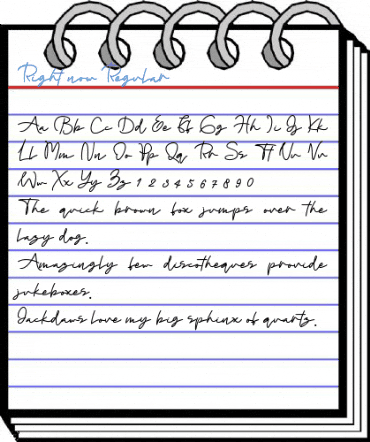 Right now Regular
Aa Bb Cc Dd Ee Ff Gg Hh Ii Jj Kk
Ll Mm Nn Oo Pp Qq Rr Ss Tt Uu Vv
Ww Xx Yy Zz 1 2 3 4 5 6 7 8 9 0
The quick brown fox jumps over the
lazy dog.
Amazingly few discotheques provide
jukeboxes.
Jackdaws love my big sphinx of quartz.